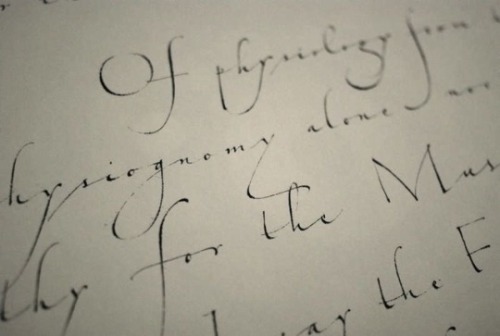 Of physiology from
hysiognomy alone nor
thy for the Mus
say the F